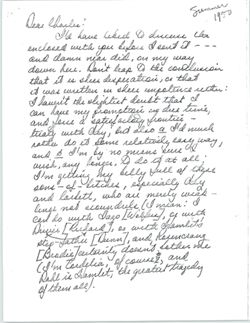 Summer
1950
Dear Charles:
I'd have liked to discuss the
enclosed with you before I sent it - - -
and damn near did, on my way
down here. Don't leap to the conclusion
that it is sheer desperation, or that
it was written in sheer impotence either:
I haven't the slightest doubt that I
can have my promotion in due time,
and force a satisfactory
treaty with Aly, but also I'd much
rather do it some relatively easy way,
and I'm by no means sure I
wish, any longer, to do it at all:
I'm getting my belly full of these
sons-of-bitches, especially Aly
and Corbett, who are merely
not scoundrels (I mean: I
can do with Iago [Wolfers], or with
[Richard], or with Hamlet's
step-father [Dunn], and Rosencranz
[Brodie] certainly doesn't bother me
(I'm Cordelia, of course, and
Dahl is Hamlet, the greatest tragedy
of them all).